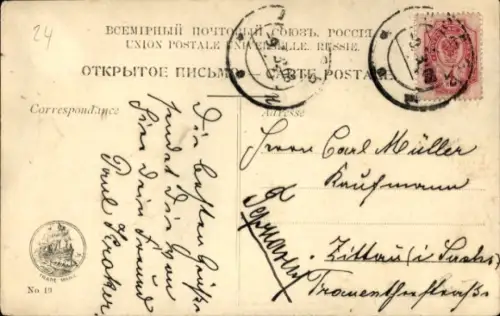 24
ВСЕМІРНЫЙ ПОЧТОВЫЙ СОЮЗЪ. РОССІЯ.
UNION POSTALE UNIVERSELLE. RUSSIE.
ОТКРЫТОЕ ПИСЬМО — CARTE POSTALE
Correspondance
Adresse
Die besten Grüße
sendet Dir von
hier dein Freund
Paul Kroker
Herrn Carl Müller
Kaufmann
Zittau (i Sachs)
TRADE MARK
No 13